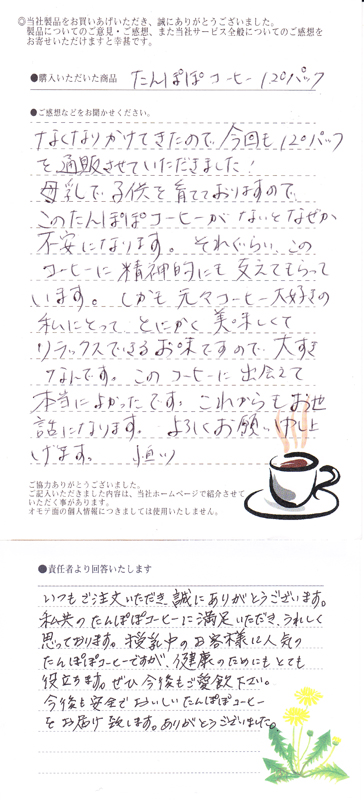 ◎当社製品をお買いあげいただき、誠にありがとうございました。
製品についてのご意見・ご感想、また当社サービス全般についてのご感想を
お寄せいただけますと幸甚です。
●購入いただいた商品 たんぽぽコーヒー120パック
●ご感想などをお聞かせください。
なくなりかけてきたので、今回も120パック
を通販させていただきました!
母乳で子供を育てておりますので、
このたんぽぽコーヒーがないとなぜか
不安になります。それぐらい、この
コーヒーに精神的にも支えてもらって
います。しかも元々コーヒー大好きの
私にとって とにかく美味しくて
リラックスできるお味ですので、大すき
なんです。このコーヒーに出会えて
本当によかったです。これからもお世
話になります。よろしくお願い申し上
げます。
ご協力ありがとうございました。
ご記入いただきました内容は、当社ホームページで紹介させて
いただく事があります。
オモテ面の個人情報につきましては使用いたしません。
●責任者より回答いたします
いつもご注文いただき、誠にありがとうございます。
私共のたんぽぽコーヒーに満足いただき、うれしく
思っております。授乳中のお客様に人気の
たんぽぽコーヒーですが、健康のためにもとても
役立ちます。ぜひ今後もご愛飲下さい。
今後も安全でおいしいたんぽぽコーヒー
をお届け致します。ありがとうございました。